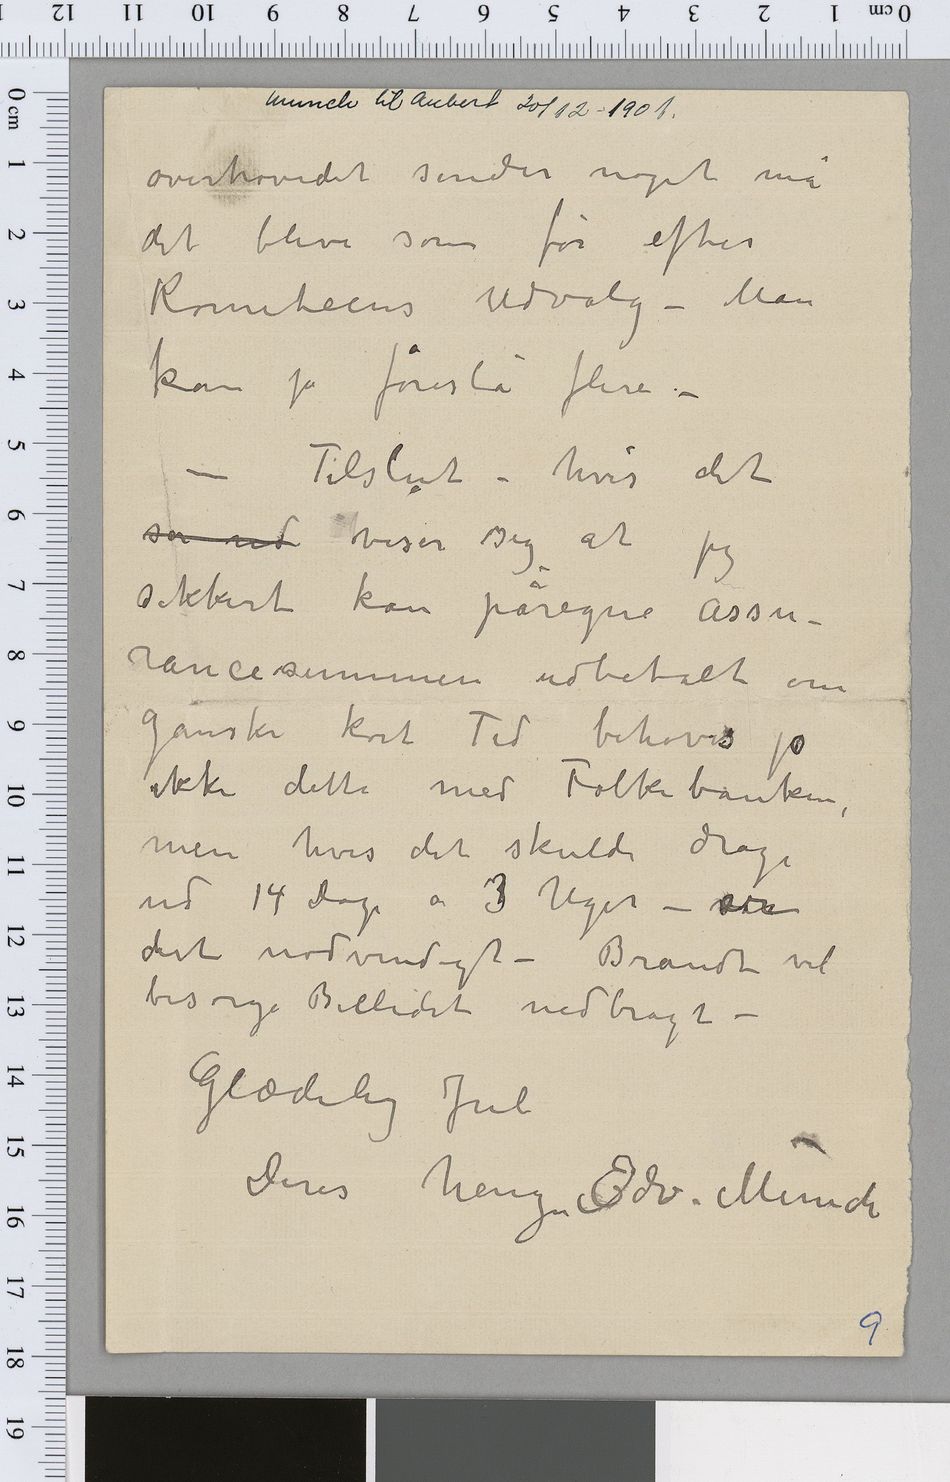 Munch til Aubert 20/12-1901.
overhovedet sender noget må
det blive som før efter
Komiteens Udvalg – Man
kan jo föreslå flere –
— Tilslut – hvis det
ser ud viser sig at jeg
sikkert kan påregne Assu-
rancesummen udbetalt om
ganske kort Tid behøves jo
ikke dette med Folkebanken,
men hvis det skulde drage
ud 14 Dage a 3 Uger –
det nødvendigt – Brandt vil
besørge Billedet nedbragt –
Glædelig Jul
Deres heng. Edv. Munch
9